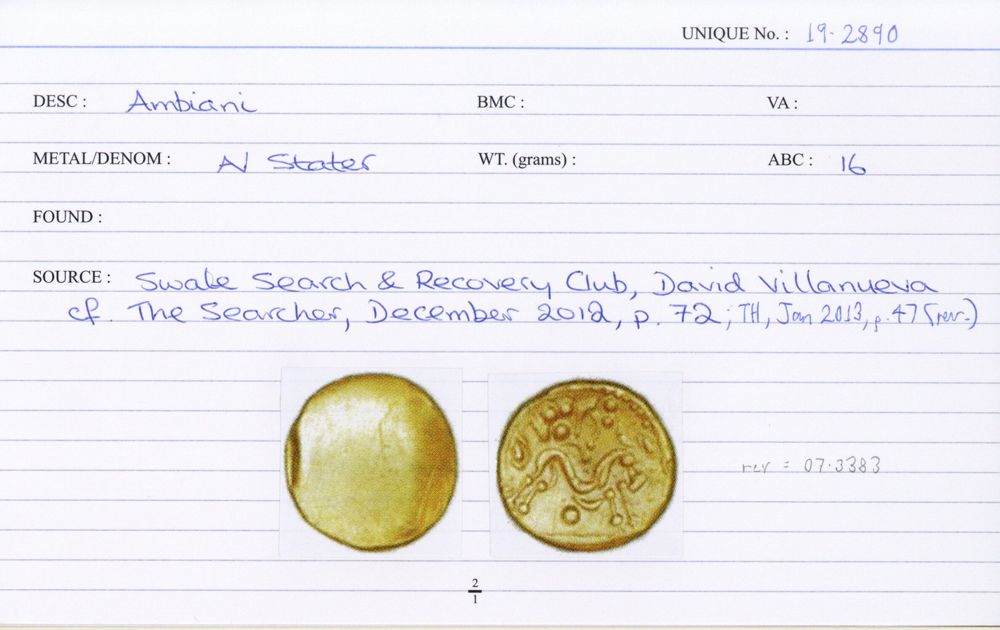 UNIQUE No. : 19-2890
DESC : Ambiani BMC : VA :
METAL/DENOM : AV Stater WT. (grams) : ABC : 16
FOUND :
SOURCE : Swale Search & Recovery Club, David Villanueva
cf. The Searcher, December 2012, p. 72; TH, Jan 2013, p. 47 (rev.)
rev = 07.3383
2
1